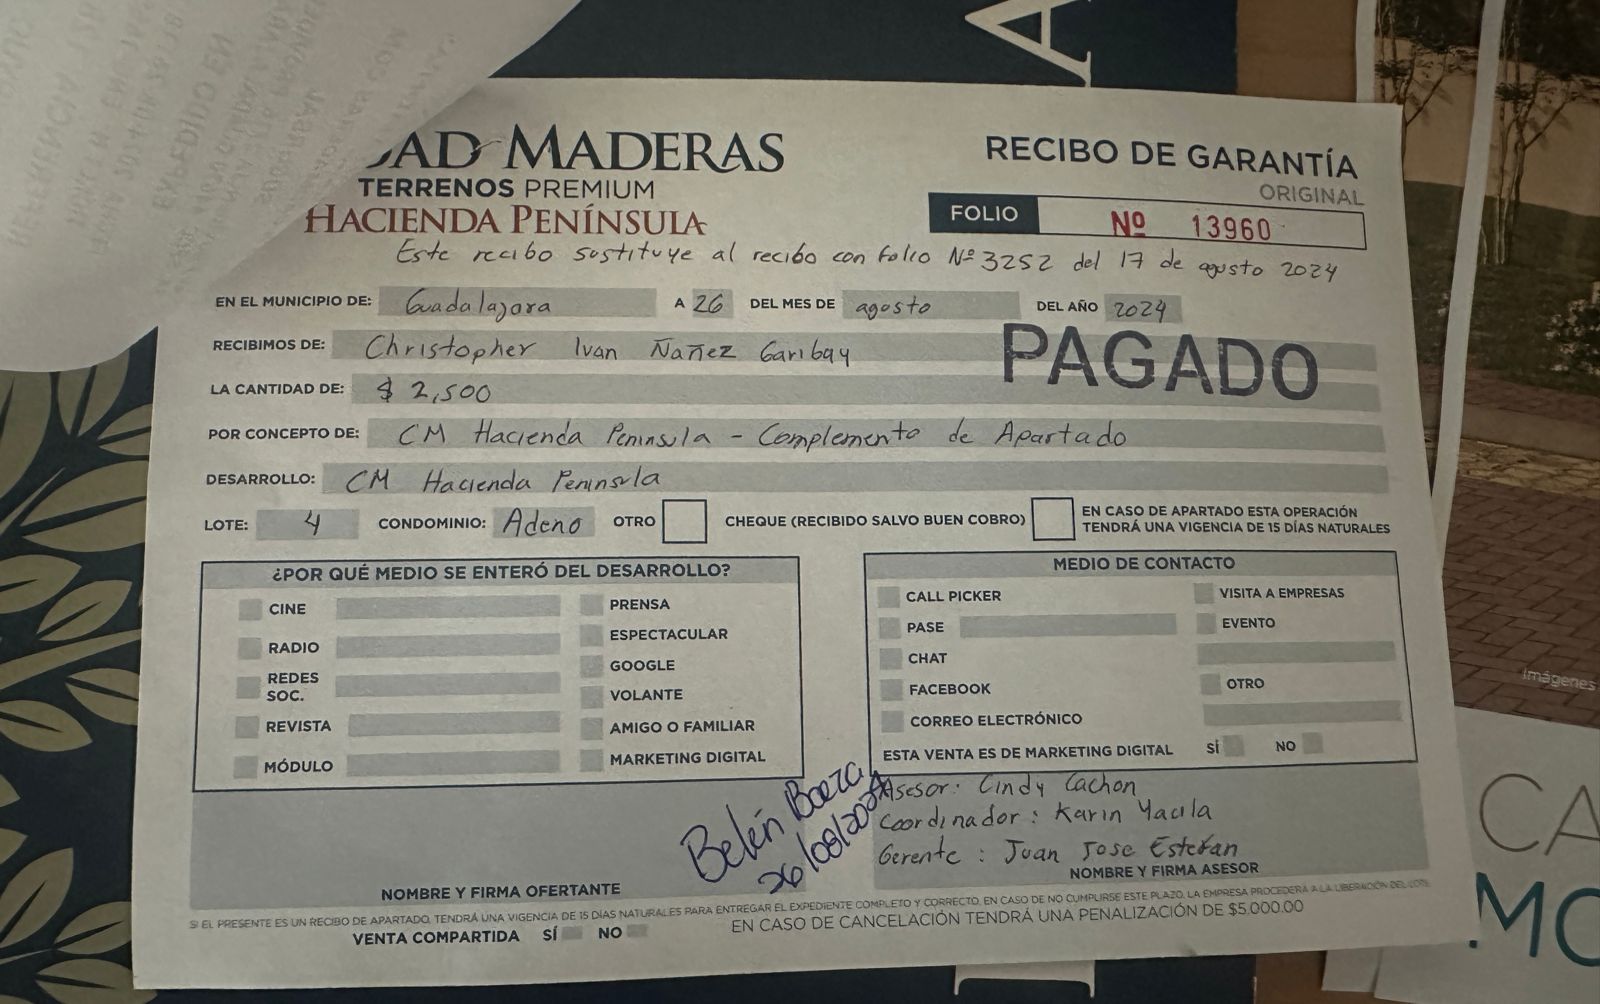 DAD MADERAS
TERRENOS PREMIUM
HACIENDA PENÍNSULA
RECIBO DE GARANTÍA
ORIGINAL
FOLIO Nº 13960
Este recibo sustituye al recibo con folio Nº 3252 del 17 de agosto 2024
EN EL MUNICIPIO DE: Guadalajara A 26 DEL MES DE agosto DEL AÑO 2024
RECIBIMOS DE: Christopher Ivan Ñañez Garibay
PAGADO
LA CANTIDAD DE: $ 2,500
POR CONCEPTO DE: CM Hacienda Peninsula - Complemento de Apartado
DESARROLLO: CM Hacienda Peninsula
LOTE: 4 CONDOMINIO: Adeno OTRO CHEQUE (RECIBIDO SALVO BUEN COBRO) EN CASO DE APARTADO ESTA OPERACIÓN
TENDRÁ UNA VIGENCIA DE 15 DÍAS NATURALES
¿POR QUÉ MEDIO SE ENTERÓ DEL DESARROLLO?
CINE
RADIO
REDES
SOC.
REVISTA
MÓDULO
PRENSA
ESPECTACULAR
GOOGLE
VOLANTE
AMIGO O FAMILIAR
MARKETING DIGITAL
MEDIO DE CONTACTO
CALL PICKER
PASE
CHAT
FACEBOOK
CORREO ELECTRÓNICO
VISITA A EMPRESAS
EVENTO
OTRO
ESTA VENTA ES DE MARKETING DIGITAL SÍ NO
Belén Baeza
26/08/2024
Asesor: Cindy Cachon
Coordinador: Karin Yacila
Gerente: Juan Jose Estefan
NOMBRE Y FIRMA OFERTANTE
NOMBRE Y FIRMA ASESOR
SI EL PRESENTE ES UN RECIBO DE APARTADO, TENDRÁ UNA VIGENCIA DE 15 DÍAS NATURALES PARA ENTREGAR EL EXPEDIENTE COMPLETO Y CORRECTO, EN CASO DE NO CUMPLIRSE ESTE PLAZO, LA EMPRESA PROCEDERÁ A LA LIBERACIÓN DEL LOTE.
VENTA COMPARTIDA SÍ NO
EN CASO DE CANCELACIÓN TENDRÁ UNA PENALIZACIÓN DE $5,000.00
A
Imágenes
CA
MO